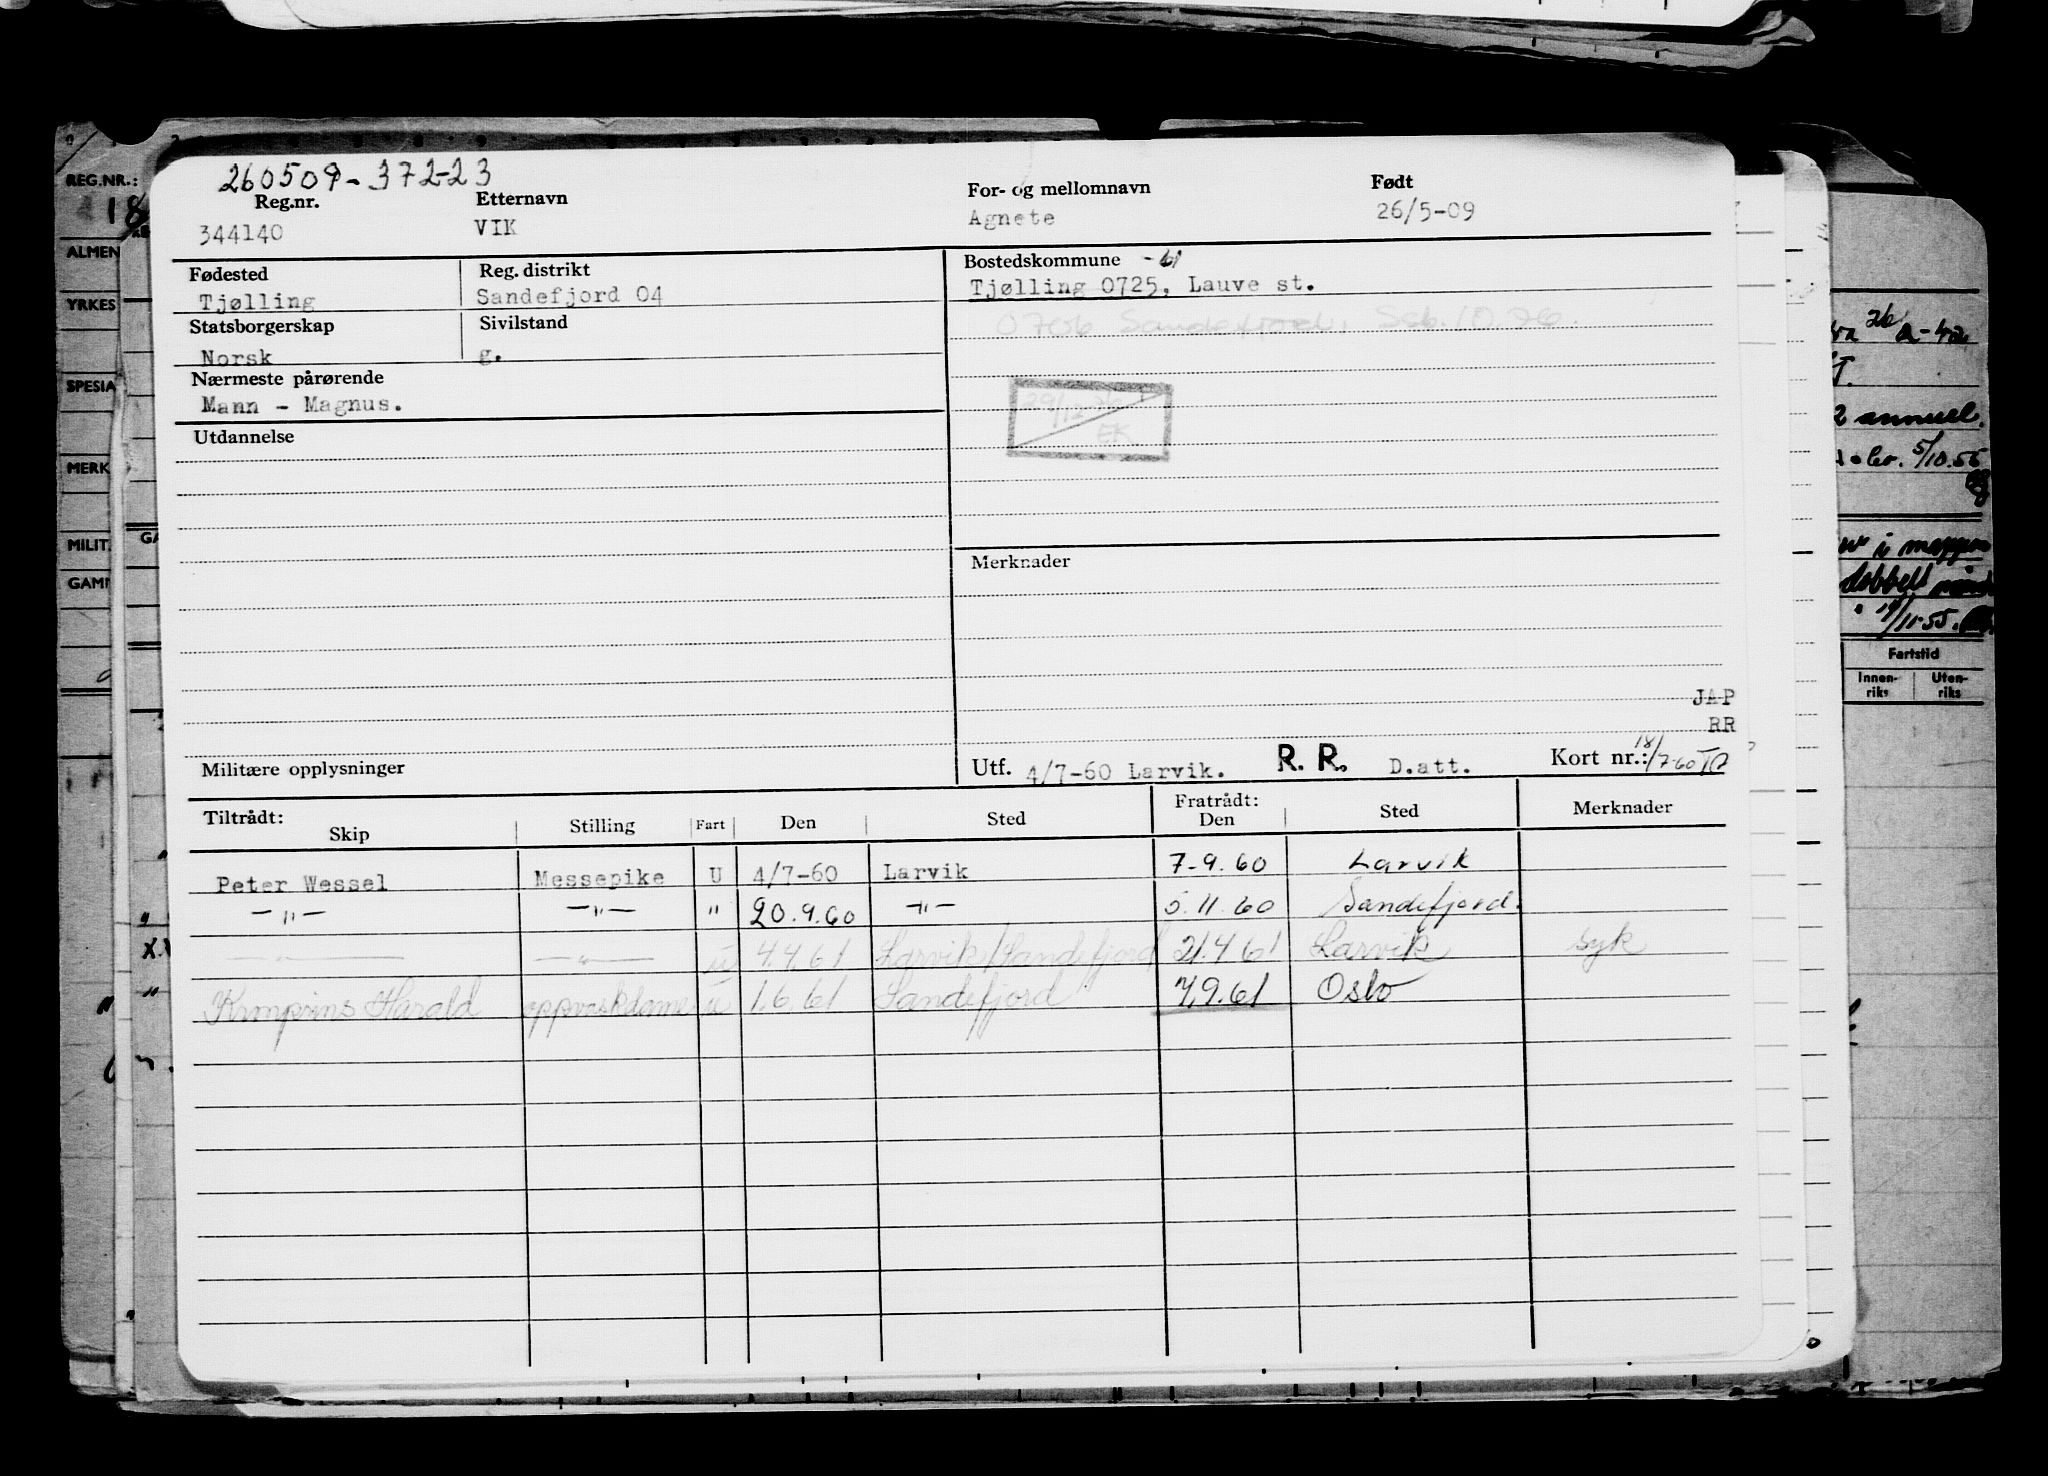 260509-372-23
Reg.nr. Etternavn For- og mellomnavn Født
344140 VIK Agnete 26/5-09
Fødested Reg. distrikt Bostedskommune -61
Tjølling Sandefjord 04 Tjølling 0725, Lauve st.
Statsborgerskap Sivilstand 0706 Sandefjord, Ssb. 10.76.
Norsk g.
Nærmeste pårørende
Mann - Magnus.
29/12 76
EK
Utdannelse
Merknader
JAP
RR
Militære opplysninger Utf. 4/7-60 Larvik. R. R. D.att. Kort nr.: 18/7-60
Tiltrådt: Fratrådt:
Skip Stilling Fart Den Sted Den Sted Merknader
Peter Wessel Messepike U 4/7-60 Larvik 7-9.60 Larvik
—"— —"— " 20.9.60 —"— 5.11.60 Sandefjord.
—"— —"— u 4.4.61 Larvik/Sandefjord 21.4.61 Larvik syk
Kronprins Harald oppvaskdame u 1.6.61 Sandefjord 7.9.61 Oslo
REG.NR.:
18
ALMEN
YRKES
SPESIA
MERK
MILIT.
GAMI
GA
2 annuel.
5/10.55
i mappen
dobbelt
11.55.
Fartstid
Innen-riks Uten-riks